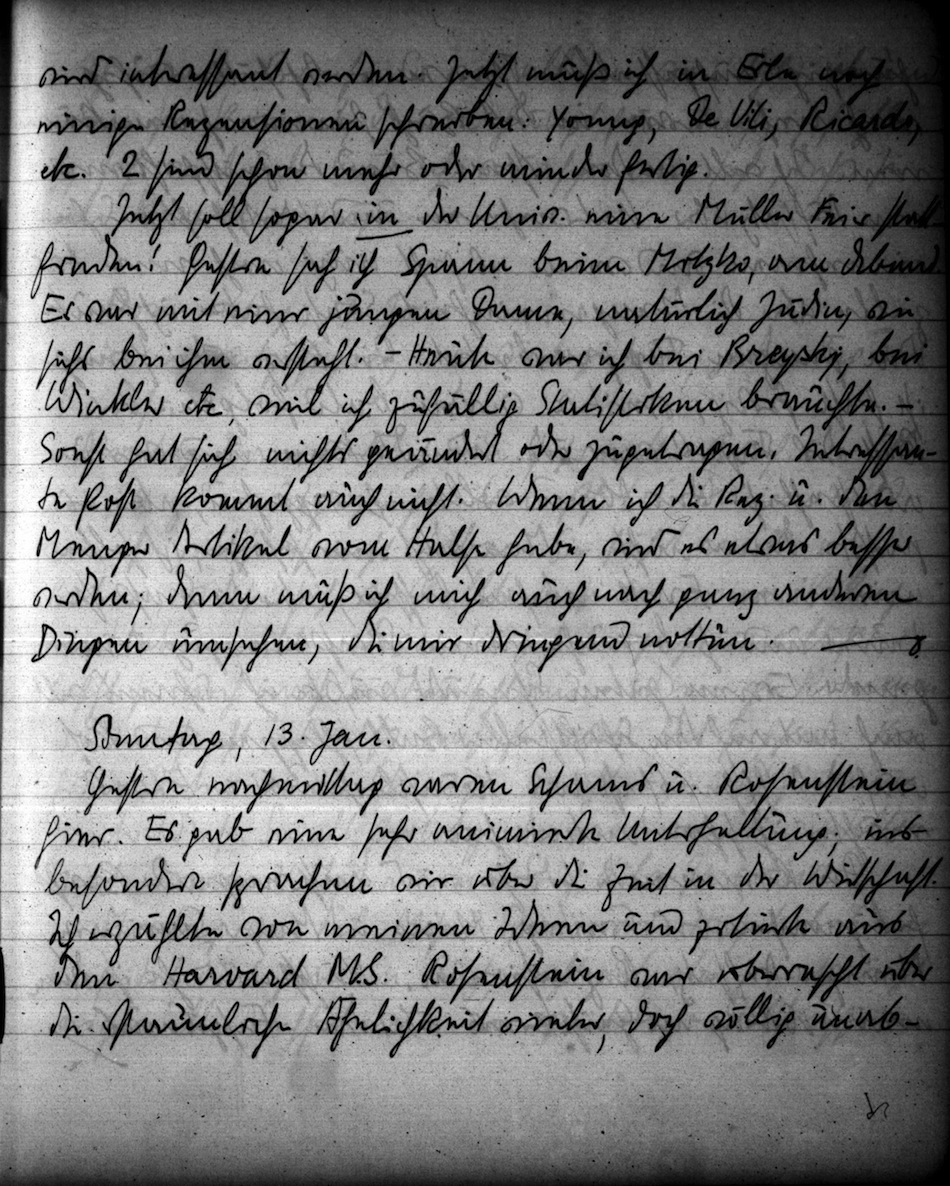 wird interessant werden. Jetzt muß ich in Eile noch
einige Rezensionen schreiben: Young, De Viti, Ricardo,
etc. 2 sind schon mehr oder minder fertig.
Jetzt soll sogar in der Univ. eine Müller Feier statt
finden! Gestern sah ich Spann beim Motzko, am Abend.
Er war mit einer jungen Dame, natürlich Jüdin, wie
sichs bei ihm versteht. – Heute war ich bei Breysky, bei
Winkler etc, weil ich zufällig Statistiken brauchte. –
Sonst hat sich nichts geändert oder zugetragen. Interessan-
te Post kommt auch nicht. Wenn ich die Rez. u. den
Menger Artikel vom Halse habe, wird es etwas besser
werden; denn muß ich mich auch nach ganz anderen
Dingen umsehen, die mir dringend nottun.
Sonntag, 13. Jan.
Gestern nachmittag waren Schams u. Rosenstein
hier. Es gab eine sehr animierte Unterhaltung; ins-
besondere sprachen wir über die Zeit in der Wirtschaft.
Ich erzählte von meinen Ideen und zitierte aus
dem Harvard M.S. Rosenstein war überrascht über
die erstaunliche Ähnlichkeit vieler, doch völlig unab-